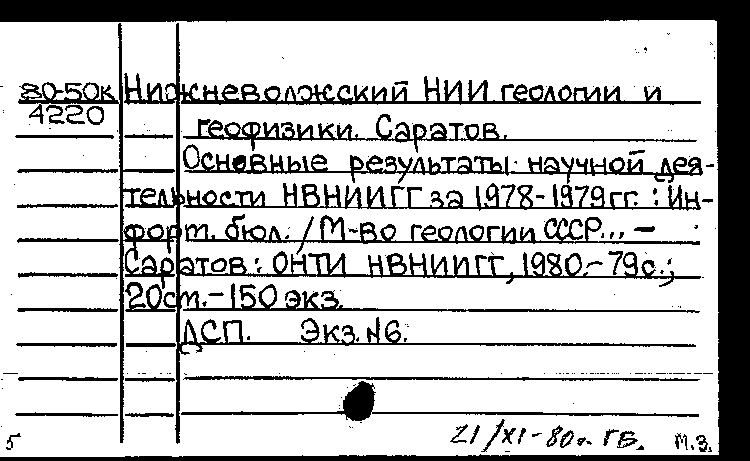 80-50к Нижневолжский НИИ геологии и
4220 геофизики. Саратов.
Основные результаты научной дея-
тельности НВНИИГГ за 1978-1979 гг. : Ин-
форм. бюл. / М-во геологии СССР... –
Саратов : ОНТИ НВНИИГГ, 1980. – 79 с. ;
20 см. – 150 экз.
ДСП. Экз. №6.
21/XI-80г. ГБ. М.З.
5